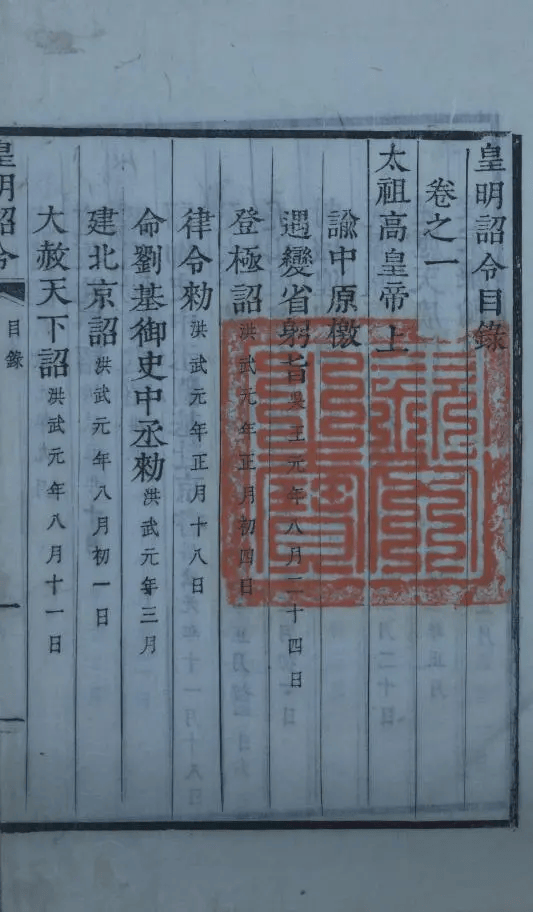 皇明詔令目錄
卷之一
太祖高皇帝上
諭中原檄
遇變省躬旨吳王元年八月二十四日
登極詔洪武元年正月初四日
律令勑洪武元年正月十八日
命劉基御史中丞勑洪武元年三月
建北京詔洪武元年八月初一日
大赦天下詔洪武元年八月十一日
皇明詔令
目錄
一